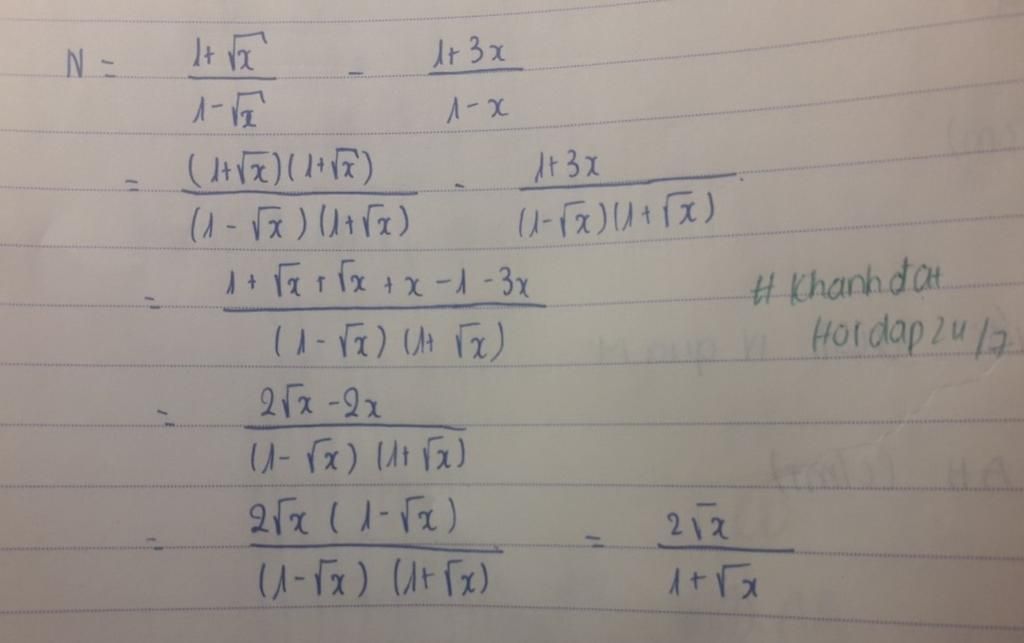 N = (1+√x)/(1-√x) - (1+3x)/(1-x)
= (1+√x)(1+√x)/(1-√x)(1+√x) - 1+3x/(1-√x)(1+√x)
= 1+√x+√x+x-1-3x/(1-√x)(1+√x)
# Khanh đat
Hoidap 24/7
= 2√x-2x/(1-√x)(1+√x)
= 2√x(1-√x)/(1-√x)(1+√x) = 2√x/1+√x